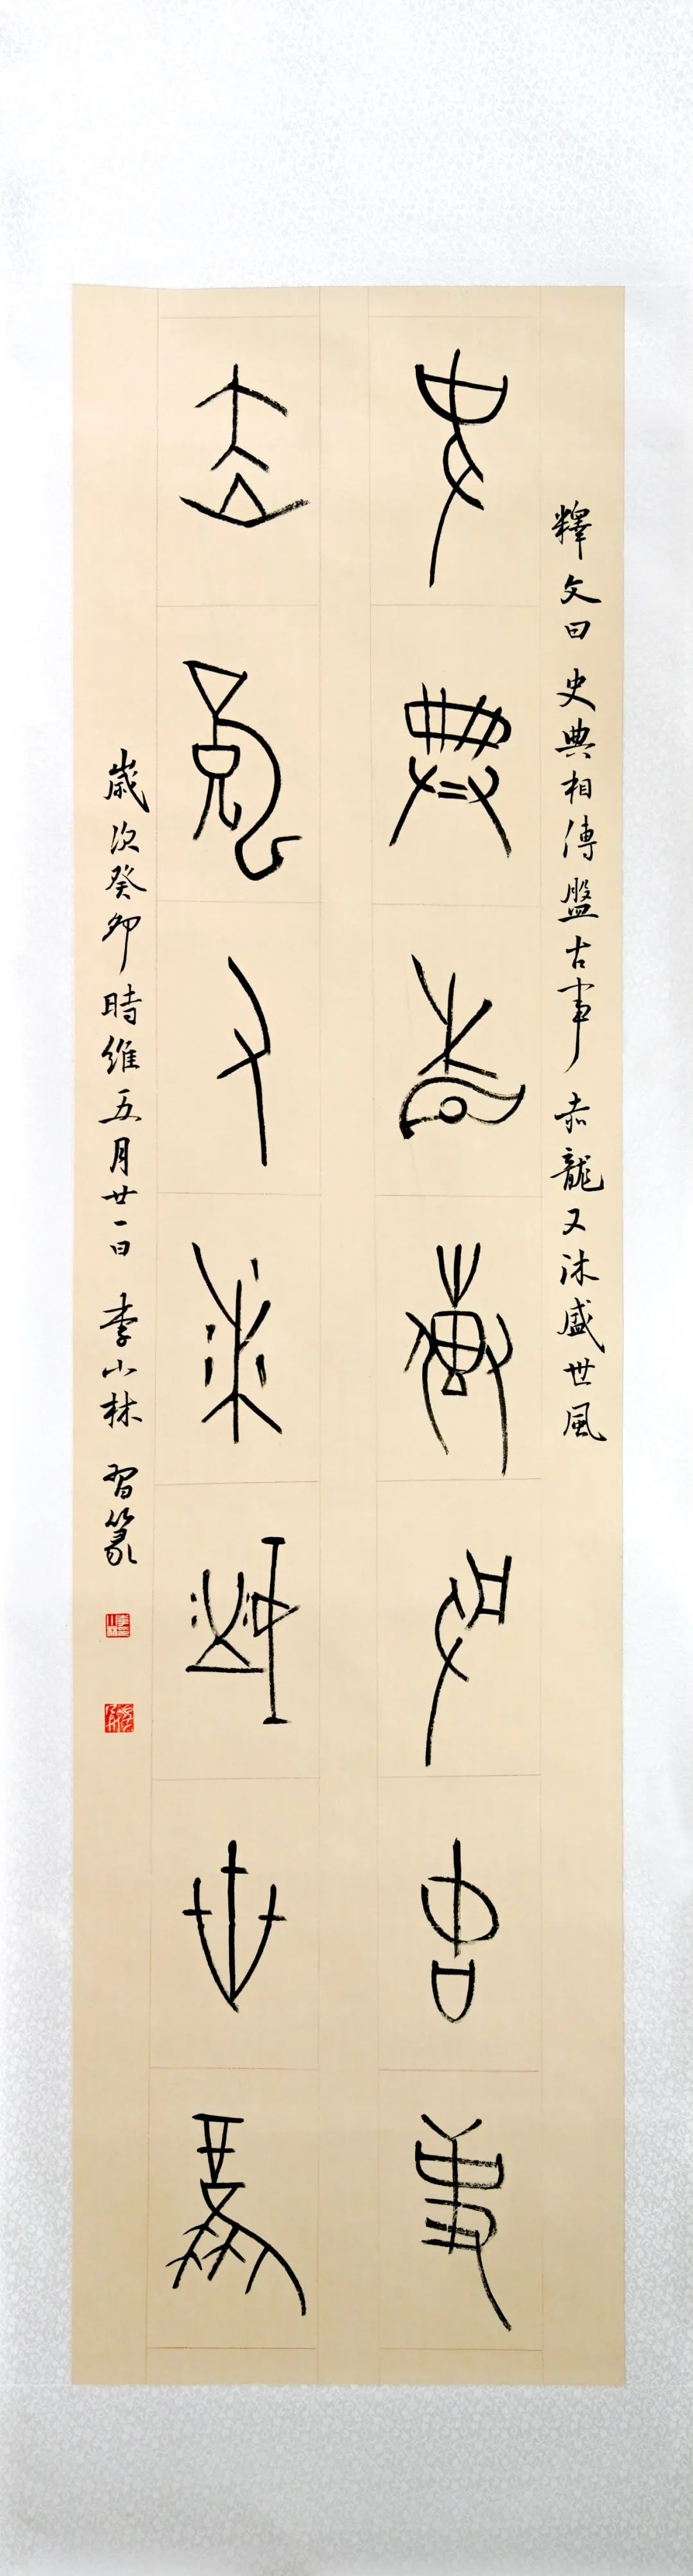 釋文曰 史典相傳盤古事 赤龍又沐盛世風
史典相傳盤古事
赤龍又沐盛世風
歲次癸卯時維五月廿一日 李小林 習篆